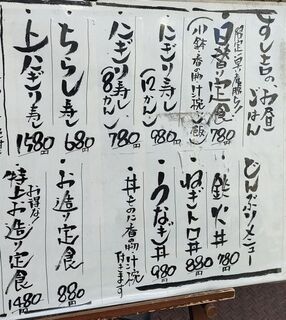 すし吉のお昼ごはん
日替り定食
(小鉢・香の物・汁椀・ご飯)
780円
にぎり寿し
(12かん)
980円
にぎり寿し
(8かん)
780円
ちらし寿し
680円
上にぎり寿し
1580円
どんぶりメニュー
鉄火丼
780円
ねぎトロ丼
880円
うなぎ丼
980円
・丼ものに香の物・汁椀
付きます
お造り定食
880円
お得な!
特上お造り定食
1480円